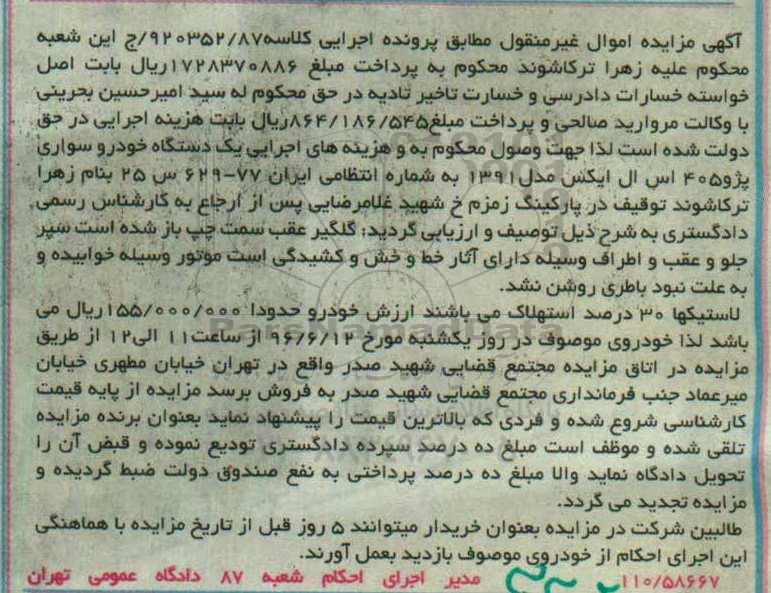 آگهی مزایده اموال غیرمنقول مطابق پرونده اجرایی کلاسه۹۲۰۳۵۲/۸۷/ج این شعبه
محکوم علیه زهرا ترکاشوند محکوم به پرداخت مبلغ ۱۷۲۸۳۷۰۸۸۶ریال بابت اصل
خواسته خسارات دادرسی و خسارت تاخیر تادیه در حق محکوم له سید امیرحسین بحرینی
با وکالت مروارید صالحی و پرداخت مبلغ۸۶۴/۱۸۶/۵۴۵ریال بابت هزینه اجرایی در حق
دولت شده است لذا جهت وصول محکوم به و هزینه های اجرایی یک دستگاه خودرو سواری
پژو۴۰۵ اس ال ایکس مدل۱۳۹۱ به شماره انتظامی ایران ۷۷-۶۲۹ س ۲۵ بنام زهرا
ترکاشوند توقیف در پارکینگ زمزم خ شهید غلامرضایی پس از ارجاع به کارشناس رسمی
دادگستری به شرح ذیل توصیف و ارزیابی گردید: گلگیر عقب سمت چپ باز شده است سپر
جلو و عقب و اطراف وسیله دارای آثار خط و خش و کشیدگی است موتور وسیله خوابیده و
به علت نبود باطری روشن نشد.
لاستیکها ۳۰ درصد استهلاک می باشند ارزش خودرو حدودا ۱۵۵/۰۰۰/۰۰۰ریال می
باشد لذا خودروی موصوف در روز یکشنبه مورخ ۹۶/۶/۱۲ از ساعت۱۱ الی۱۲ از طریق
مزایده در اتاق مزایده مجتمع قضایی شهید صدر واقع در تهران خیابان مطهری خیابان
میرعماد جنب فرمانداری مجتمع قضایی شهید صدر به فروش برسد مزایده از پایه قیمت
کارشناسی شروع شده و فردی که بالاترین قیمت را پیشنهاد نماید بعنوان برنده مزایده
تلقی شده و موظف است مبلغ ده درصد سپرده دادگستری تودیع نموده و قبض آن را
تحویل دادگاه نماید والا مبلغ ده درصد پرداختی به نفع صندوق دولت ضبط گردیده و
مزایده تجدید می گردد.
طالبین شرکت در مزایده بعنوان خریدار میتوانند ۵ روز قبل از تاریخ مزایده با هماهنگی
این اجرای احکام از خودروی موصوف بازدید بعمل آورند.
۱۱۰/۵۸۶۶۷ مدیر اجرای احکام شعبه ۸۷ دادگاه عمومی تهران
ParsNamadData